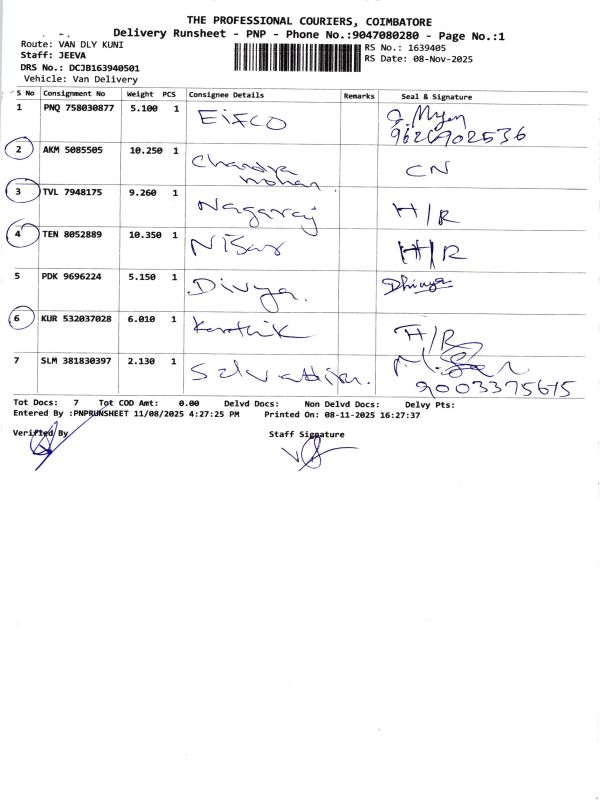 THE PROFESSIONAL COURIERS, COIMBATORE
Delivery Runsheet - PNP - Phone No.:9047080280 - Page No.:1
Route: VAN DLY KUNI
RS No.: 1639405
Staff: JEEVA
RS Date: 08-Nov-2025
DRS No.: DCJB163940501
Vehicle: Van Delivery
S No Consignment No Weight PCS Consignee Details Remarks Seal & Signature
1 PNQ 758030877 5.100 1 EiFCO
2 AKM 5085505 10.250 1 Chandra mohan CN
3 TVL 7948175 9.260 1 Nagaraj H/R
4 TEN 8052889 10.350 1 Nisar H/R
5 PDK 9696224 5.150 1 Divya. Dhivya
6 KUR 532037028 6.010 1 Karthik H/R
7 SLM 381830397 2.130 1 9003375615
Tot Docs: 7 Tot COD Amt: 0.00 Delvd Docs: Non Delvd Docs: Delvy Pts:
Entered By :PNPRUNSHEET 11/08/2025 4:27:25 PM Printed On: 08-11-2025 16:27:37
Verified By Staff Signature